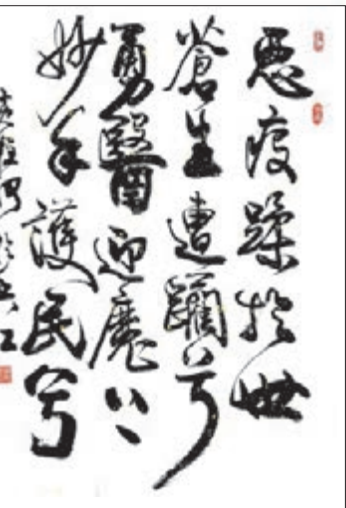 惡疫蹂於世
蒼生遭躪兮
勇醫迎魔
妙手護民兮